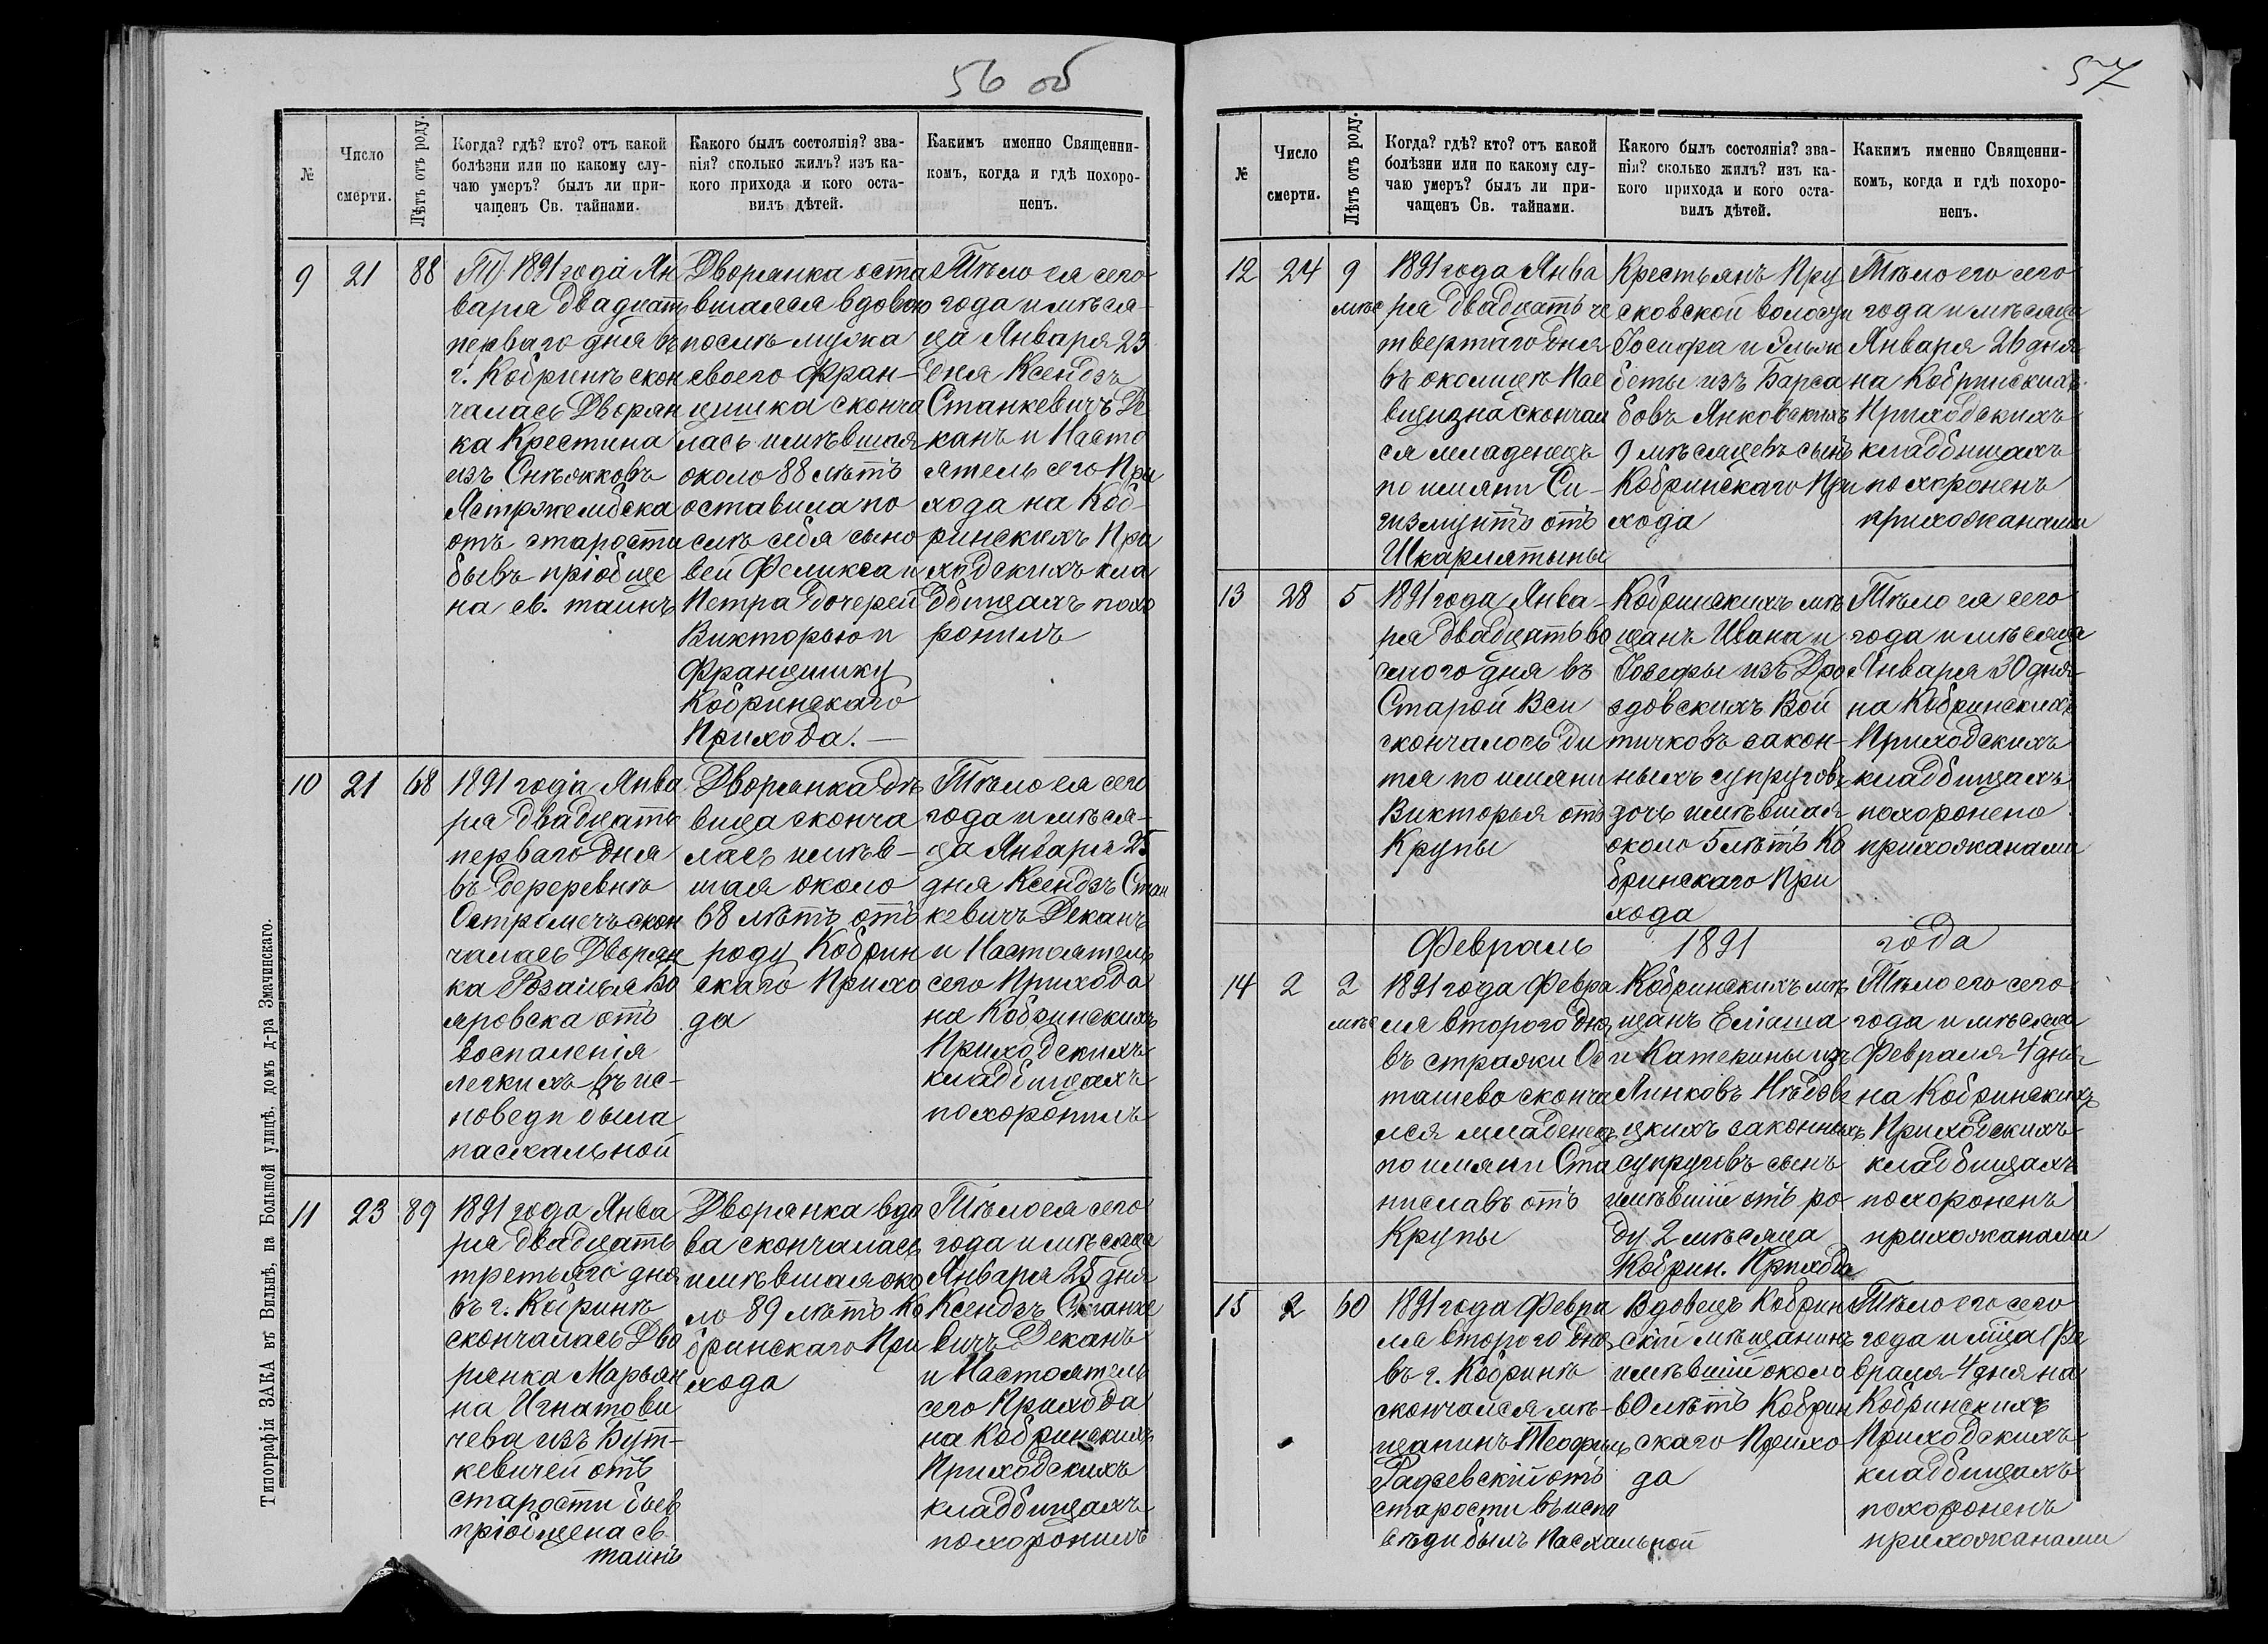 56 об
№
Число
смерти.
Лѣтъ отъ роду.
Когда? гдѣ? кто? отъ какой
болѣзни или по какому слу-
чаю умеръ? былъ ли при-
чащенъ Св. тайнами.
Какого былъ состоянія? зва-
нія? сколько жилъ? изъ ка-
кого прихода и кого оста-
вилъ дѣтей.
Какимъ именно Священни-
комъ, когда и гдѣ похоро-
ненъ.
9
21
88
1891 года Ян
варя двадцать
перваго дня въ
г. Кобринѣ скон
чалась Дворян
ка Крестина
изъ Снѣжковъ
Ястржембска
отъ старости
бывъ пріобще
на св. таинъ
Дворянка оста
вшаяся вдовою
послѣ мужа
своего Фран-
цишка сконча
лась имѣвшая
около 88 лѣтъ
оставила по
слѣ себя сыно
вей Феликса и
Петра дочерей
Викторью и
Францишку
Кобринскаго
Прихода. —
Тѣло ея сего
года и мѣся-
ца Января 23
дня Ксендзъ
Станкевичъ Де
канъ и Насто
ятель сего При
хода на Коб-
ринскихъ При
ходскихъ кла
дбищахъ похо
ронилъ
10
21
68
1891 года Янва
ря двадцать
перваго дня
въ дереревнѣ
Остромечъ скон
чалась Дворян
ка Розалья Бо
яровска отъ
воспаленія
легкихъ въ ис-
поведи была
пасхальной
Дворянка дѣ
вица сконча
лась имѣв-
шая около
68 лѣтъ отъ
роду Кобрин
скаго Прихо
да
Тѣло ея сего
года и мѣся-
ца Января 25
дня Ксендзъ Стан
кевичъ Деканъ
и Настоятель
сего Прихода
на Кобринскихъ
Приходскихъ
кладбищахъ
похоронилъ
11
23
89
1891 года Янва
ря двадцать
третьяго дня
въ г. Кобринѣ
скончалась Дво
рянка Марьян
на Игнатови
чева изъ Бут-
кевичей отъ
старости бывъ
пріобщена св.
таинъ
Дворянка вдо
ва скончалась
имѣвшая око
ло 89 лѣтъ Ко
бринскаго При
хода
Тѣло ея сего
года и мѣсяца
Января 25 дня
Ксендзъ Станке
вичъ Деканъ
и Настоятель
сего Прихода
на Кобринскихъ
Приходскихъ
кладбищахъ
похоронилъ
Типографія ЗАКА въ Вильнѣ, на Большой улицѣ, домъ д-ра Змачинскаго.
57
№
Число
смерти.
Лѣтъ отъ роду.
Когда? гдѣ? кто? отъ какой
болѣзни или по какому слу-
чаю умеръ? былъ ли при-
чащенъ Св. тайнами.
Какого былъ состоянія? зва-
нія? сколько жилъ? изъ ка-
кого прихода и кого оста-
вилъ дѣтей.
Какимъ именно Священни-
комъ, когда и гдѣ похоро-
ненъ.
12
24
9
мѣс
1891 года Янва
ря двадцать че
твертаго дня
въ околицѣ Пае
вщизна скончал
ся младенецъ
по имяни Си-
гизмунтъ отъ
Шкарлятыны
Крестьянъ Пру
сковской волости
Іосифа и Эльяк
беты изъ Барса
бовъ Янковскихъ
9 мѣсяцевъ сынъ
Кобринскаго При
хода
Тѣло его сего
года и мѣсяца
Января 26 дня
на Кобринскихъ
Приходскихъ
кладбищахъ
похороненъ
прихожанами
13
28
5
1891 года Янва-
ря двадцать во
сьмого дня въ
Старой Вси
скончалось ди
тя по имяни
Викторья отъ
Крупы
Кобринскихъ мѣ
щанъ Ивана и
Іозефы изъ Дро
здовскихъ Вой
тичковъ закон-
ныхъ супруговъ
дочь имѣвшая
около 5 лѣтъ Ко
бринскаго При
хода
Тѣло ея сего
года и мѣсяца
Января 30 дня
на Кобринскихъ
Приходскихъ
кладбищахъ
похоронено
прихожанами
Февраль 1891 года
14
2
2
мѣс
1891 года Февра
ля второго дня
въ стражки Ос
ташево сконча
лся младенецъ
по имяни Ста
ниславъ отъ
Крупы
Кобринскихъ мѣ
щанъ Еліаша
и Катерины изъ
Линковъ Нѣдзвѣ
цкихъ законныхъ
супруговъ сынъ
имѣвшій отъ ро-
ду 2 мѣсяца
Кобрин. Прихода
Тѣло его сего
года и мѣсяца
Февраля 4 дня
на Кобринскихъ
Приходскихъ
кладбищахъ
похороненъ
прихожанами
15
2
60
1891 года Февра
ля второго дня
въ г. Кобринѣ
скончался мѣ-
щанинъ Теофилъ
Радзевскій отъ
старости въ испо
вѣди былъ Пасхальной
Вдовецъ Кобрин
скій мѣщанинъ
имѣвшій около
60 лѣтъ Кобрин
скаго Прихо
да
Тѣло его сего
года и мѣца Фе
враля 4 дня на
Кобринскихъ
Приходскихъ
кладбищахъ
похороненъ
прихожанами